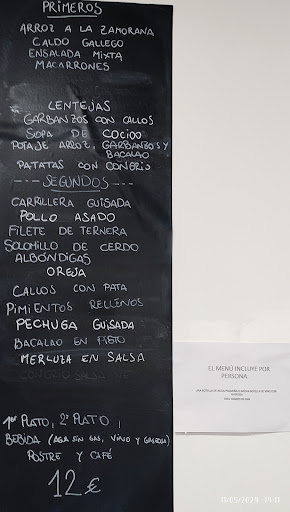 PRIMEROS
ARROZ A LA ZAMORANA
CALDO GALLEGO
ENSALADA MIXTA
MACARRONES
LENTEJAS
GARBANZOS CON CALLOS
SOPA DE COCIDO
POTAJE ARROZ, GARBANZOS Y
BACALAO
PATATAS CON CONGRIO
--- SEGUNDOS ---
CARRILLERA GUISADA
POLLO ASADO
FILETE DE TERNERA
SOLOMILLO DE CERDO
ALBÓNDIGAS
OREJA
CALLOS CON PATA
PIMIENTOS RELLENOS
PECHUGA GUISADA
BACALAO EN PISTO
MERLUZA EN SALSA
1er PLATO, 2º PLATO,
BEBIDA (AGUA SIN GAS, VINO Y GASEOSA)
POSTRE Y CAFÉ
12 €
EL MENÚ INCLUYE POR
PERSONA:
11/05/2024 14:11